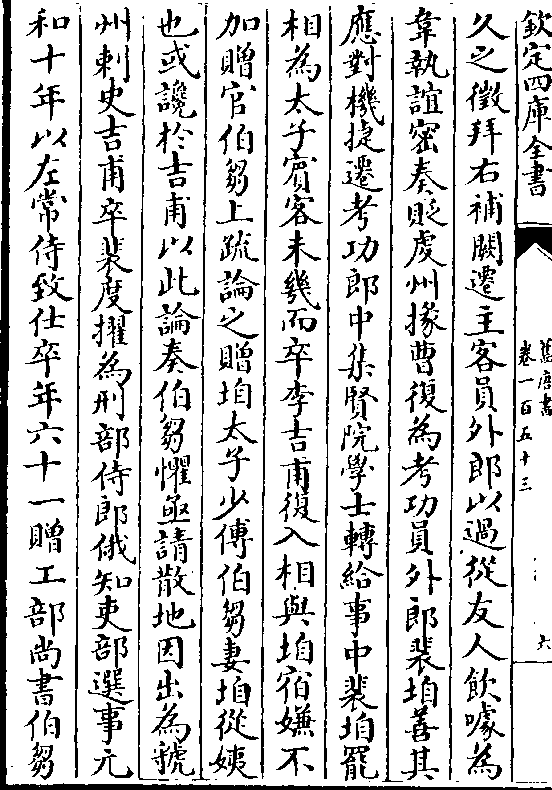 欽定四庫全書
舊唐書
卷一百五十三
六
久之徵拜右補闕遷主客員外郎以過從友人飲噱為
韋執誼密奏貶䖍州掾曹復為考功員外郎裴垍善其
應對機捷遷考功郎中集賢院學士轉給事中裴垍罷
相為太子賓客未幾而卒李吉甫復入相與垍宿嫌不
加贈官伯芻上疏論之贈垍太子少傅伯芻妻垍從姨
也或讒於吉甫以此論奏伯芻懼亟請散地因出為虢
州刺史吉甫卒裴度擢為刑部侍郎俄知吏部選事元
和十年以左常侍致仕卒年六十一贈工部尚書伯芻